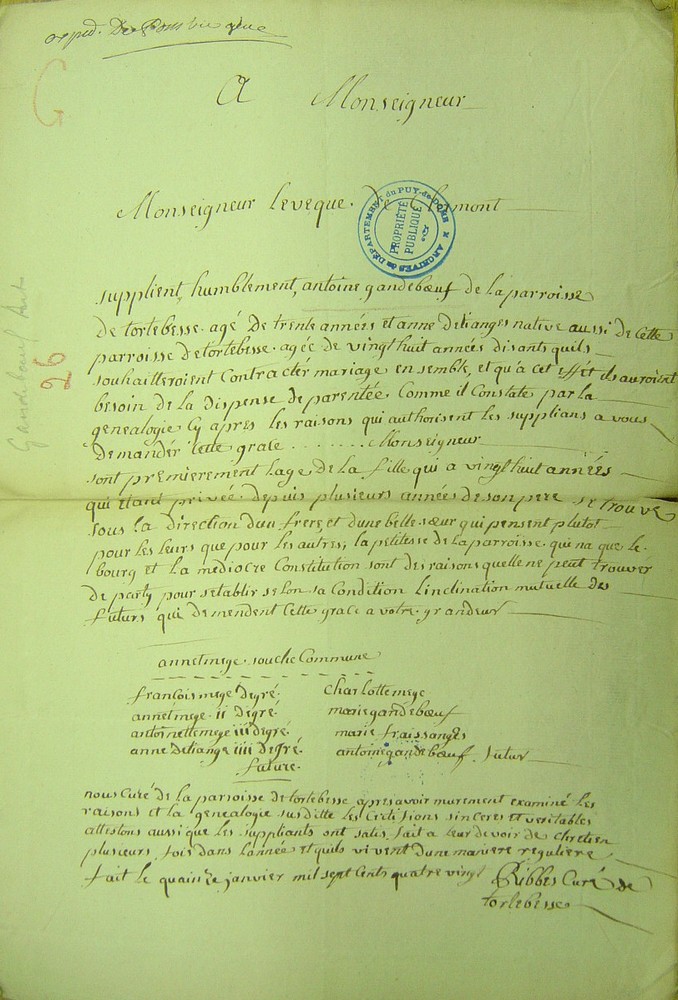 exped. De
A Monseigneur
G
Monseigneur leveque De Clermont
DÉPARTEMENT du PUY-de-DÔME ARCHIVES
PROPRIÉTÉ PUBLIQUE
supplient, humblement, antoine gandebœuf de la parroisse
De tortebesse agé De trente années et anne deliange native aussi de cette
parroisse de tortebesse agée de vingt huit années disants quils
souhaitteroient Contracter mariage ensemble, et qu'a cet effét ils auroint
besoin de la dispense de parentée Comme il Constate par la
genealogie Cy apres les raisons qui authorisent les supplians a vous
Demandér cette grace ....... Monseigneur
26
sont premierement lage de la fille qui a vingt huit années
qui étant privée depuis plusieurs années de son pere se trouve
sous la direction dun frere, et dune belle sœur qui pensent plutot
pour les leurs que pour les autres, la petitesse de la parroisse qui na que le
bourg et la mediocre Constitution sont des raisons quelle ne peut trouver
de party pour setablir selon sa Condition linclination mutuelle des
futurs qui demendent Cette grace a votre grandeur
annet mege souche Commune
francois mege Degré. Charlotte mege
annet mege ii Degré. marie gandebœuf
antoinette mege iii degré. marie fraissange
anne deliange iiii Degré. antoine gandebœuf. futur
future.
nous Curé de la parroisse de tortebesse apres avoir murement examiné les
raisons et la genealogie susditte les Certifions sinceres et veritables
attestons aussi que les suppliants ont satisfait a leur devoir de chretien
plusieurs fois dans lannée et quils vivent dune maniere reguliere
fait le quainze janvier mil sept Cents quatre vingt Ribbes Curé de
tortebesse